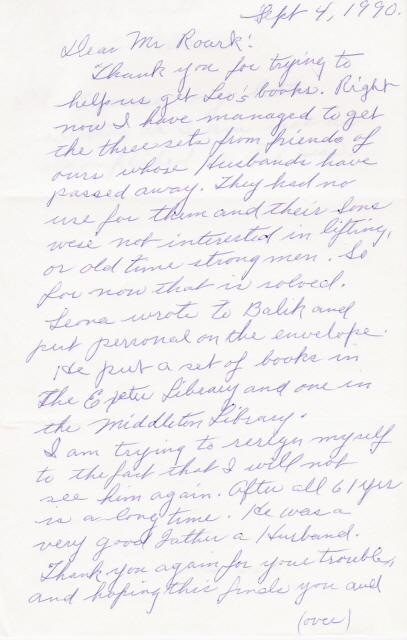 Sept 4, 1990.
Dear Mr Roark:
"Thank you for trying to
help us get Leo's books. Right
now I have managed to get
the three sets from friends of
ours whose Husbands have
passed away. They had no
use for them and their Sons
were not interested in lifting,
or old time strong men. So
for now that is solved.
Leona wrote to Balik and
put personal on the envelope.
He put a set of books in
the Exeter Library and one in
the Middleton Library.
I am trying to resign myself
to the fact that I will not
see him again. After all 61 yrs
is a long time. He was a
very good Father a Husband.
Thank you again for your trouble,
and hoping this finds you and
(over)